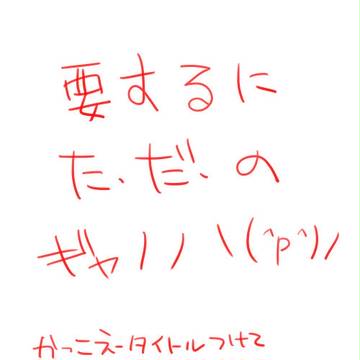 要するに
ただの
ギャノノ ヽ(^p^)ノ
かっこえータイトルつけて